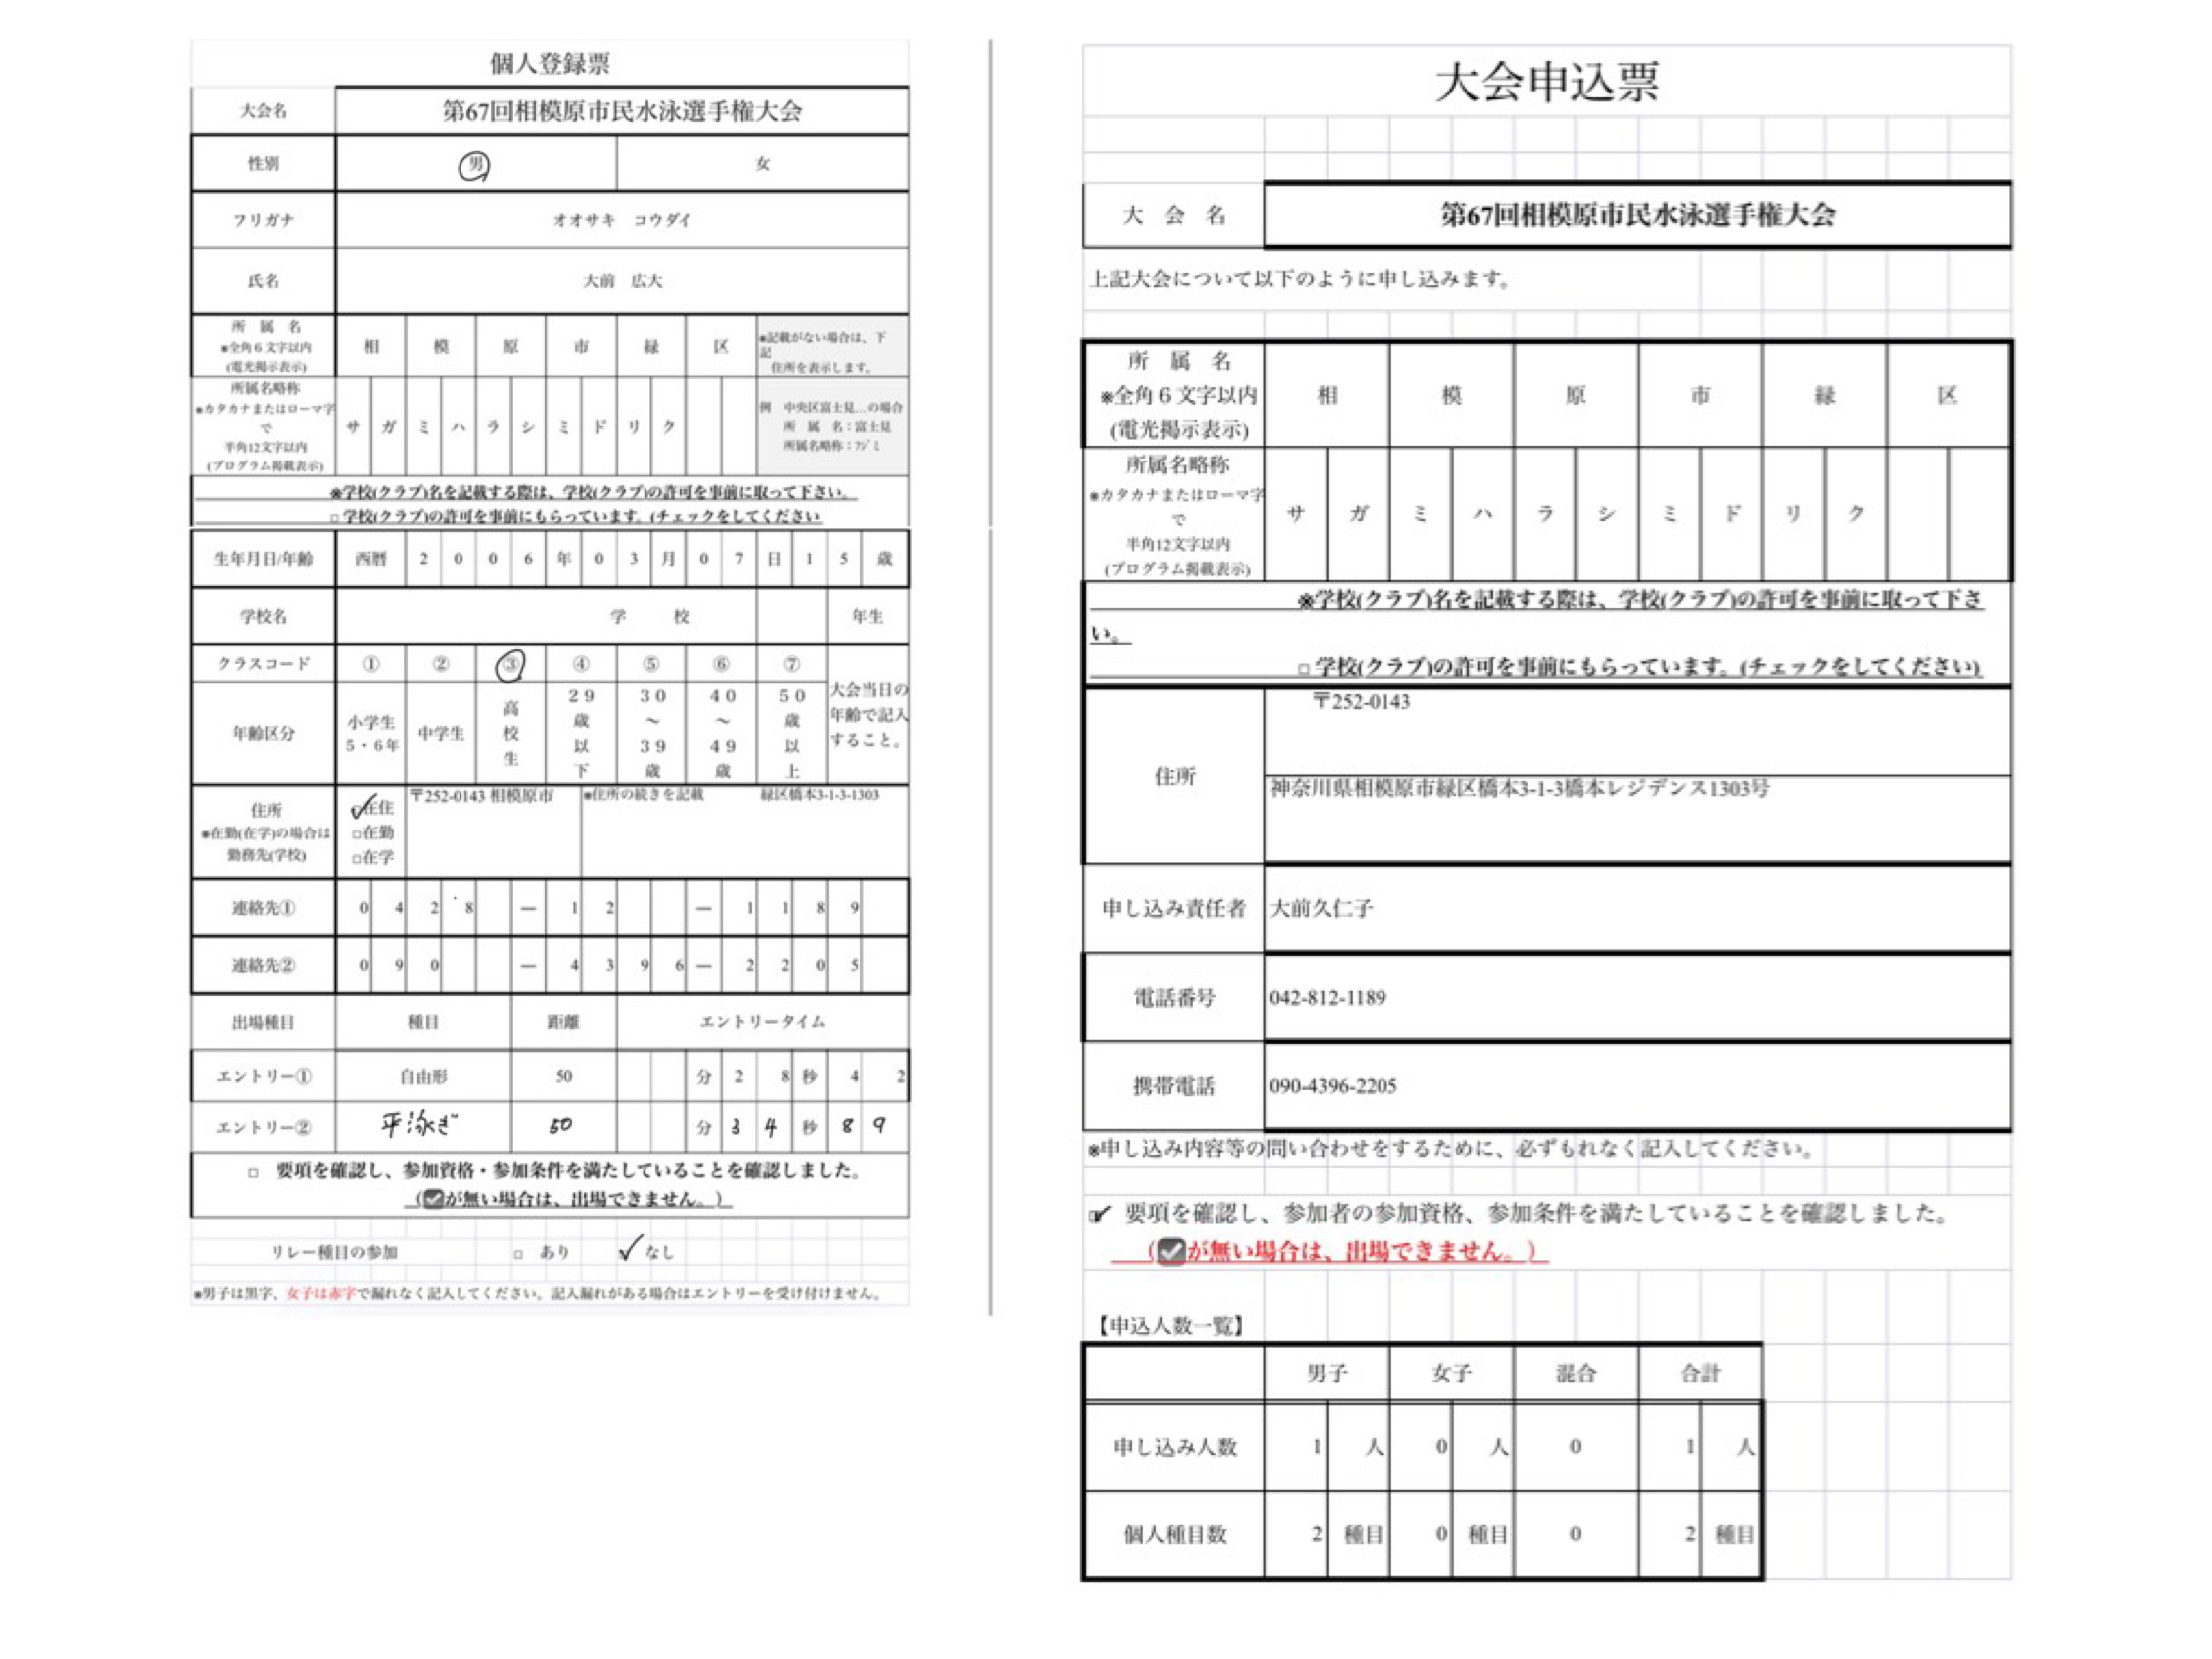 個人登録票
大会名 第67回相模原市民水泳選手権大会
性別 男 女
フリガナ オオサキ コウダイ
氏名 大前 広大
所 属 名
※全角6文字以内
(電光掲示表示)
相 模 原 市 緑 区
※記載がない場合は、下
記
住所を表示します。
所属名略称
※カタカナまたはローマ字
で
半角12文字以内
(プログラム掲載表示)
サ ガ ミ ハ ラ シ ミ ド リ ク
例 中央区富士見…の場合
所 属 名：富士見
所属名略称：フジミ
※学校(クラブ)名を記載する際は、学校(クラブ)の許可を事前に取って下さい。
□ 学校(クラブ)の許可を事前にもらっています。(チェックをしてください
生年月日/年齢 西暦 2 0 0 6 年 0 3 月 0 7 日 1 5 歳
学校名 学 校 年生
クラスコード ① ② ③ ④ ⑤ ⑥ ⑦
年齢区分
小学生
5・6年
中学生
高校生
29歳以下
30～39歳
40～49歳
50歳以上
大会当日の
年齢で記入
すること。
住所
※在勤(在学)の場合は
勤務先(学校)
☑在住
□在勤
□在学
〒252-0143 相模原市
※住所の続きを記載 緑区橋本3-1-3-1303
連絡先① 0 4 2 8 — 1 2 — 1 1 8 9
連絡先② 0 9 0 — 4 3 9 6 — 2 2 0 5
出場種目 種目 距離 エントリータイム
エントリー① 自由形 50 分 2 8 秒 4 2
エントリー② 平泳ぎ 50 分 3 4 秒 8 9
□ 要項を確認し、参加資格・参加条件を満たしていることを確認しました。
（☑が無い場合は、出場できません。）
リレー種目の参加 □ あり ✓ なし
※男子は黒字、女子は赤字で漏れなく記入してください。記入漏れがある場合はエントリーを受け付けません。
大会申込票
大 会 名 第67回相模原市民水泳選手権大会
上記大会について以下のように申し込みます。
所 属 名
※全角6文字以内
(電光掲示表示)
相 模 原 市 緑 区
所属名略称
※カタカナまたはローマ字
で
半角12文字以内
(プログラム掲載表示)
サ ガ ミ ハ ラ シ ミ ド リ ク
※学校(クラブ)名を記載する際は、学校(クラブ)の許可を事前に取って下さ
い。
□ 学校(クラブ)の許可を事前にもらっています。(チェックをしてください)
住所
〒252-0143
神奈川県相模原市緑区橋本3-1-3橋本レジデンス1303号
申し込み責任者 大前久仁子
電話番号 042-812-1189
携帯電話 090-4396-2205
※申し込み内容等の問い合わせをするために、必ずもれなく記入してください。
☑ 要項を確認し、参加者の参加資格、参加条件を満たしていることを確認しました。
（☑が無い場合は、出場できません。）
【申込人数一覧】
男子 女子 混合 合計
申し込み人数 1 人 0 人 0 1 人
個人種目数 2 種目 0 種目 0 2 種目